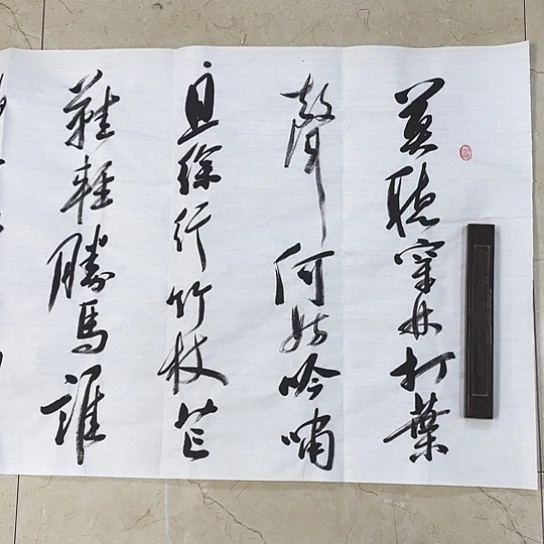 莫聽穿林打葉
聲何妨吟嘯
且徐行竹杖芒
鞋輕勝馬誰